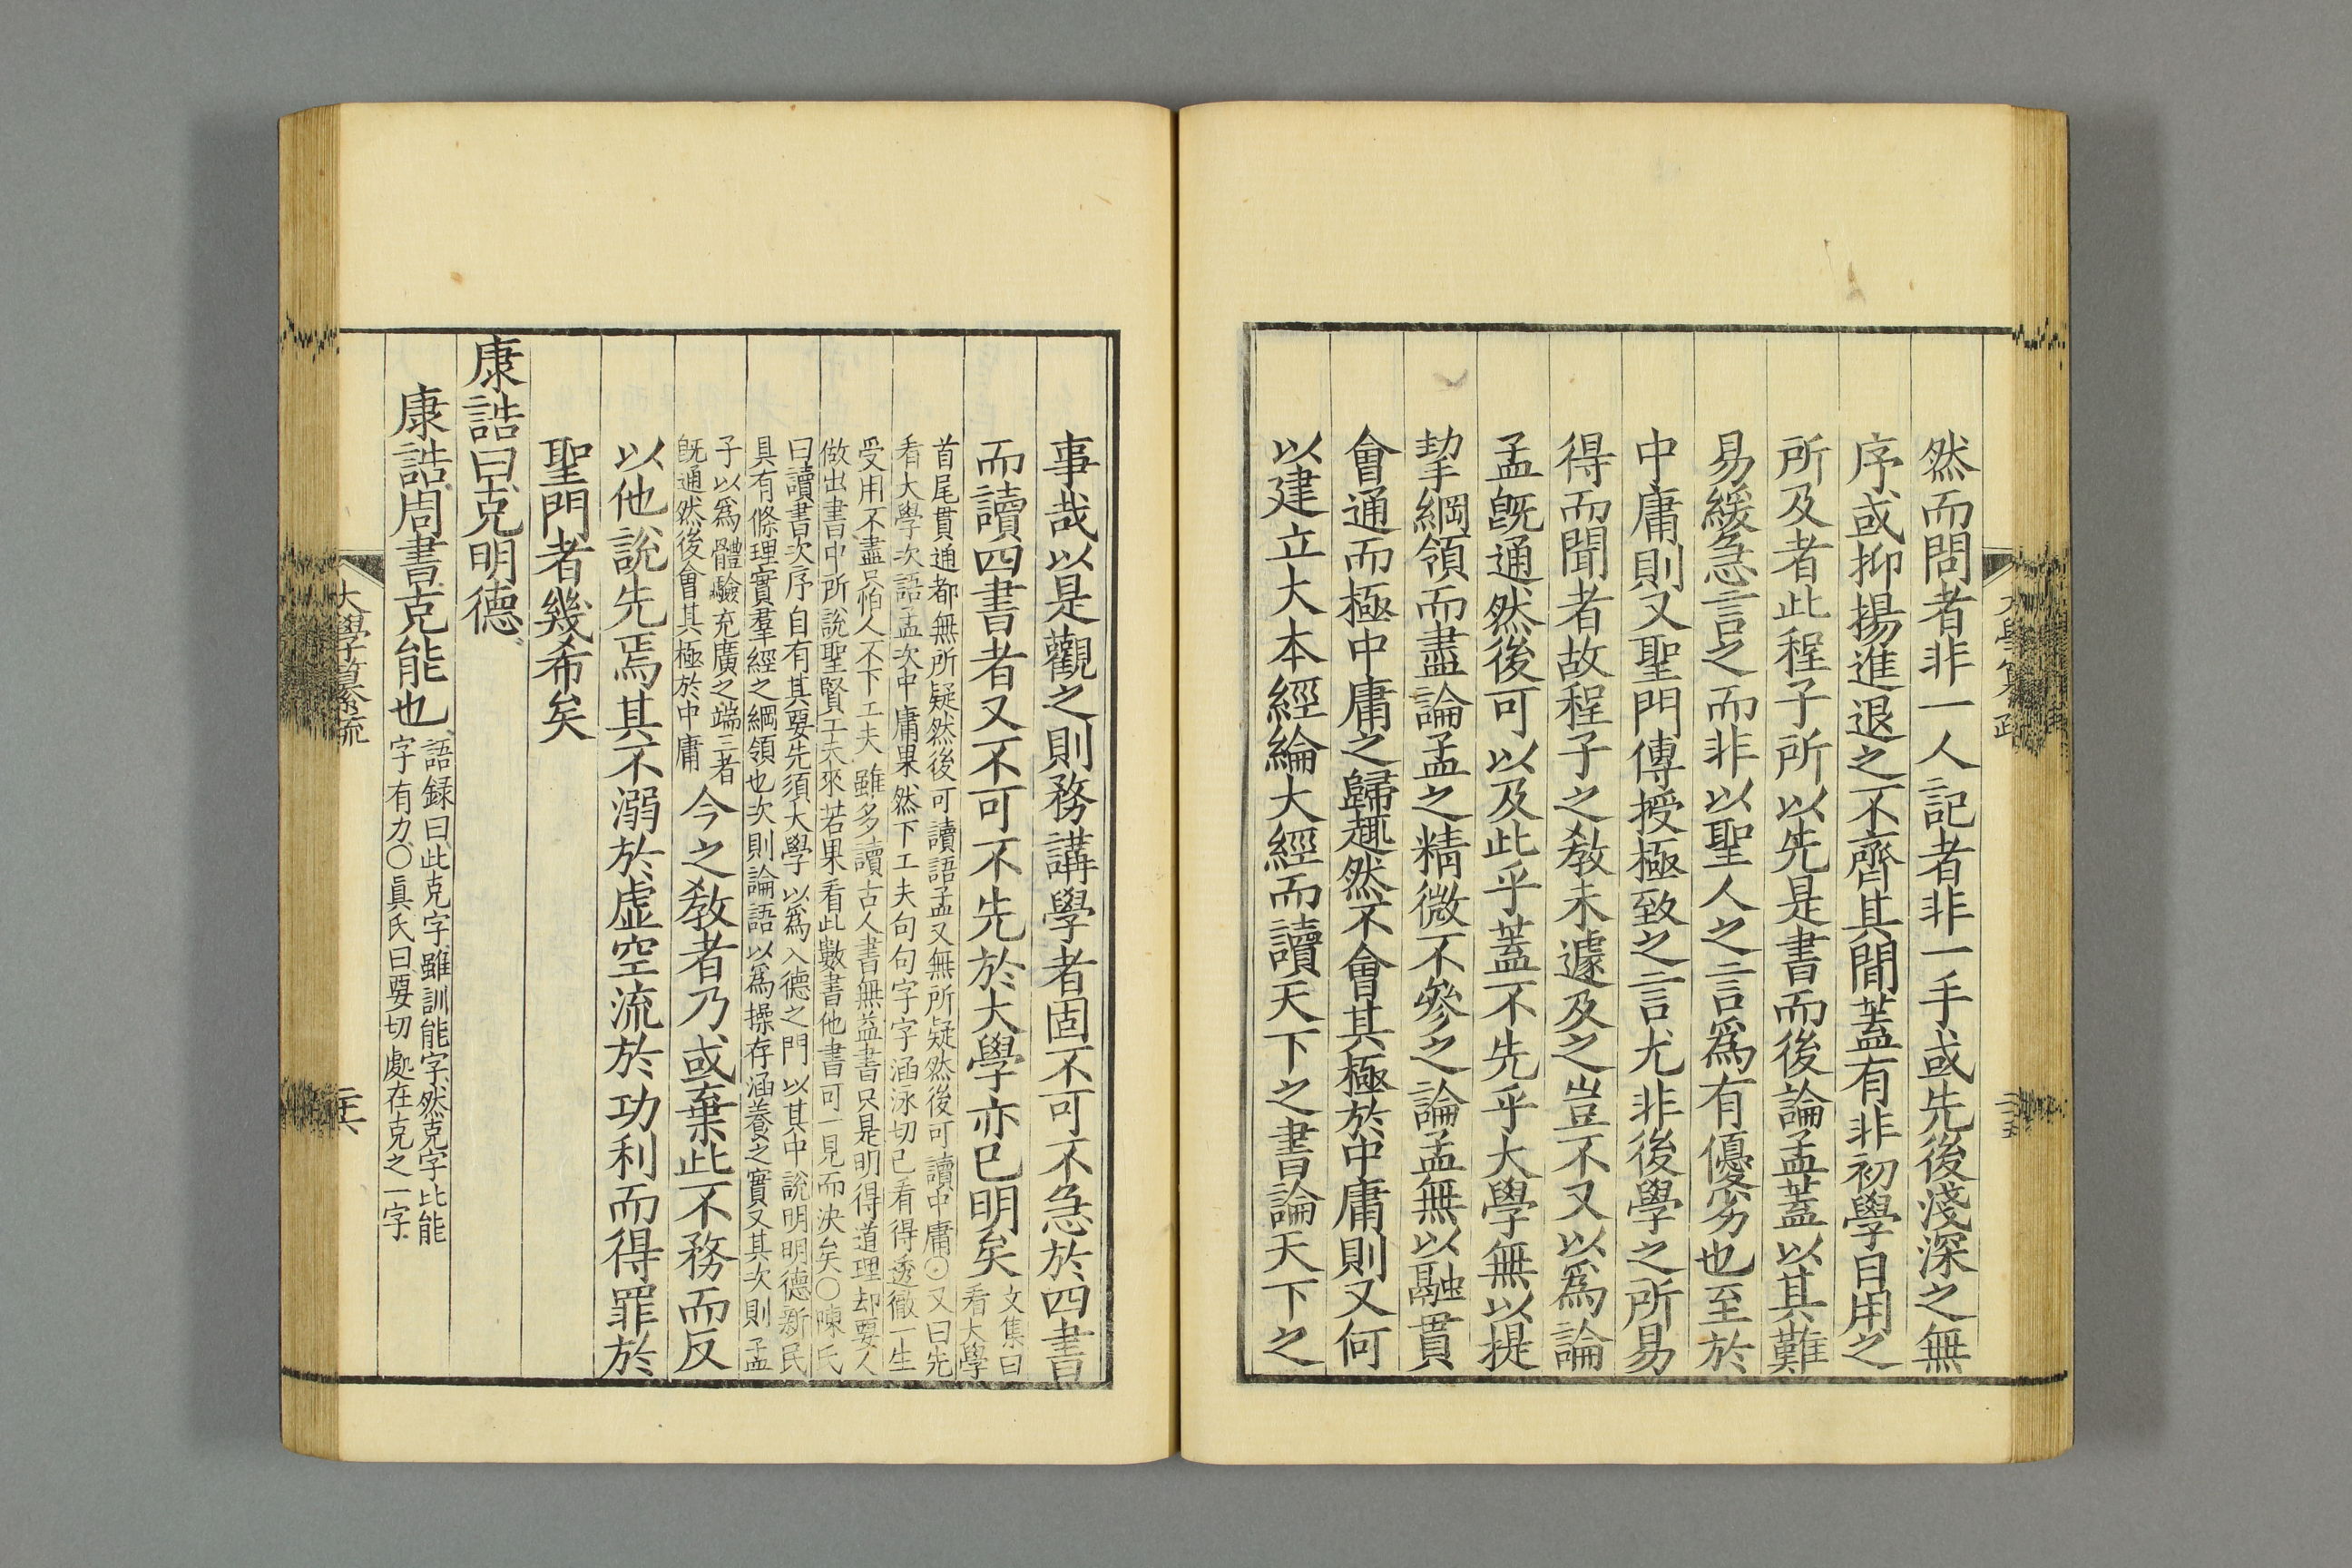 然而問者非一人記者非一手或先後淺深之無
序或抑揚進退之不齊其間蓋有非初學日用之
所及者此程子所以先是書而後論孟蓋以其難
易緩急言之而非以聖人之言爲有優劣也至於
中庸則又聖門傳授極致之言尤非後學之所易
得而聞者故程子之教未遽及之豈不又以爲論
孟既通然後可以及此乎蓋不先乎大學無以提
挈綱領而盡論孟之精微不參之論孟無以融貫
會通而極中庸之歸趣然不會其極於中庸則又何
以建立大本經綸大經而讀天下之書論天下之
事哉以是觀之則務講學者固不可不急於四書
而讀四書者又不可不先於大學亦已明矣
文集曰
看大學
首尾貫通都無所疑然後可讀語孟又無所疑然後可讀中庸○又曰先
看大學次語孟次中庸果然下工夫句句字字涵泳切己看得透徹一生
受用不盡只怕人不下工夫雖多讀古人書無益書只是明得道理却要人
做出書中所說聖賢工夫來若果看此數書他書可一見而決矣○陳氏
曰讀書次序自有其要先須大學以爲入德之門以其中說明明德新民
具有條理實羣經之綱領也次則論語以爲操存涵養之實又其次則孟
子以爲體驗充廣之端三者
既通然後會其極於中庸
今之教者乃或棄此不務而反
以他說先焉其不溺於虛空流於功利而得罪於
聖門者幾希矣
康誥曰克明德
康誥周書克能也
語録曰此克字雖訓能字然克字比能
字有力○眞氏曰要切處在克之一字
大學纂疏
二十六